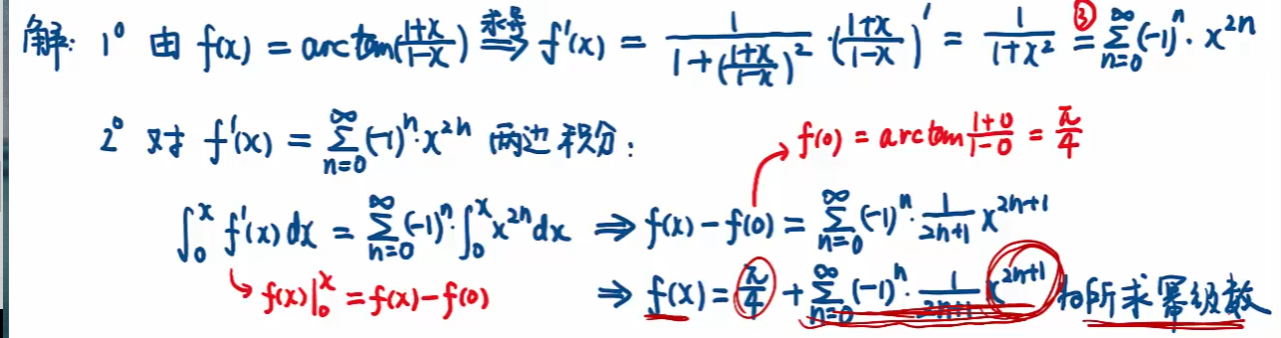 解: 1° 由 f(x) = arctan(\frac{1+x}{1-x}) \xRightarrow{求导} f'(x) = \frac{1}{1+(\frac{1+x}{1-x})^2}·(\frac{1+x}{1-x})' = \frac{1}{1+x^2} \overset{③}{=} \sum_{n=0}^{∞}(-1)^n·x^{2n}
2° 对 f'(x) = \sum_{n=0}^{∞}(-1)^n·x^{2n} 两边积分:
f(0) = arctan\frac{1+0}{1-0} = \frac{π}{4}
\int_0^x f'(x)dx = \sum_{n=0}^{∞}(-1)^n·\int_0^x x^{2n}dx ⇒ f(x)-f(0) = \sum_{n=0}^{∞}(-1)^n·\frac{1}{2n+1}x^{2n+1}
f(x)|_0^x = f(x)-f(0) ⇒ f(x) = \frac{π}{4} + \sum_{n=0}^{∞}(-1)^n·\frac{1}{2n+1}x^{2n+1} 为所求幂级数